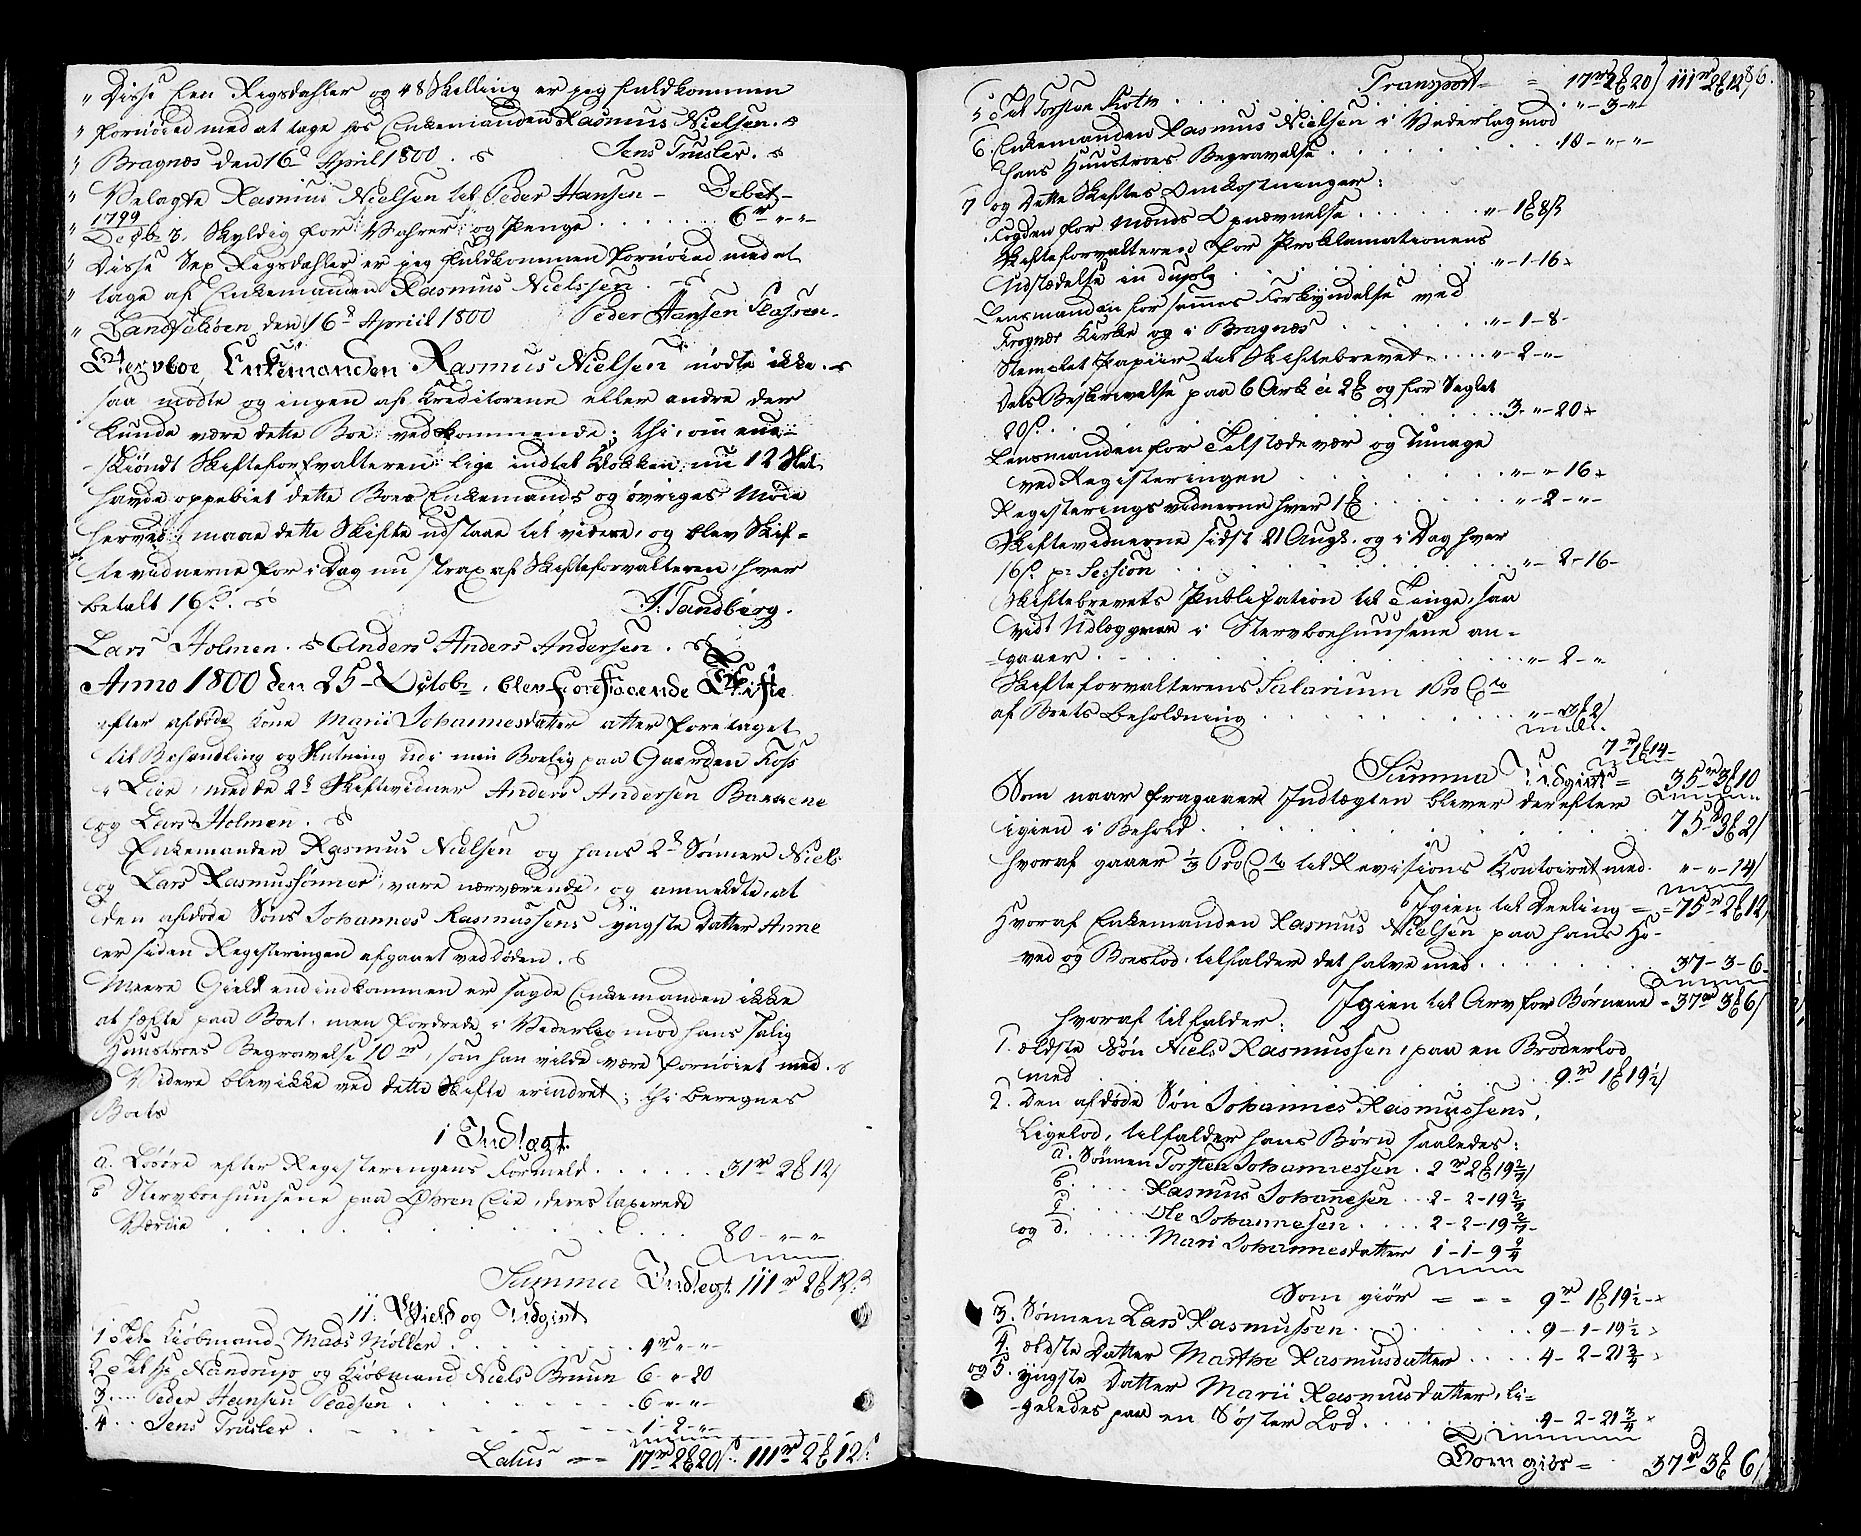 " Disse Een Rigsdahler og 48 Skelling er jeg fuldkommen
" fornøied med at tage hos Enkemanden Rasmus Nielsen.
" Bragnæs den 16d April 1800. Jens Trusler.
" Velagte Rasmus Nielsen til Peder Hansen - Debet -
" 1799
" Decbr 3. Skyldig for Vahrer og Penge . . . . . 6r " "
" Disse Sex Rigsdahler er jeg fuldkommen fornøied med at
" tage af Enkemanden Rasmus Nielssen.
" Landfalden den 16d April 1800 Peder Hansen
Stervboe Enkemanden Rasmus Nielsen mødte ikke.
saa mødte og ingen af Kreditorene eller andre der
kunde være dette Boe vedkommende; thi, om end-
skiøndt Skifteforvalteren lige indtil Klokken nu 12 Slet
havde oppebiet dette Boes Enkemands og øvriges Møde
herved; maae dette Skifte udstaae til videre, og blev Skif=
tevidnerne for i Dag nu strax af Skifteforvalteren, hver
betalt 16s. J. Tandberg.
Lars Holmen. Anders Anders Andersen.
Anno 1800 den 25 Octobr, blev foreskrevende Skifte
efter afdøde Kone Marii Johannesdatter atter foretaget
til Behandling og Slutning udi min Boelig paa Gaarden Foss
i Lier, med de 2de Skiftevidner Anders Andersen
og Lars Holmen.
Enkemanden Rasmus Nielsen og hans 2de Sønner Niels
og Lars Rasmussønner, vare nærværende, og anmeldte, at
den afdøde Søns Johannes Rasmussens yngste Datter Anne
er siden Registeringen afgaaet ved døden.
Meere Gield end indkommen er sagde Enkemanden ikke
at hæfte paa Boet, men fordrede i Vederlag mod hans salig
Huustroes Begravelse 10r, som han vilde være fornøiet med.
Videre blev ikke ved dette Skifte erindret; thi beregnes
Boets
i Indtægt.
a. Løsøre efter Registeringens Formeld . . . . . . 31r 2 12
b Stervboehuusene paa Øhren Eie, deres taxerede
Værdie . . . . . . . . 80 - " - "
Summa Indtegt 111r 2 12s
ii. Gield og Udgivt
1 Til Kiøbmand Mads Møller . . . . . . 4r " - "
2 Til Sr Nandrup og Kiøbmand Niels Bruun 6 - " - 20
3 . . . Peder Hansen . . . . . . 6 - " - "
4 . . Jens Trusler . . . . . . 1 - 2 - "
Latus == 17r 2 20s 111r 2 12s
Transport = 17r 2 20s 111r 2 12s 86.
5 Til Torsten Holm . . . . . . " - 3 - "
6 Enkemanden Rasmus Nielsen i Vederlag mod
hans Huustroes Begravelse . . . . . . 10 - " - "
7 og Dette Skiftes Omkostninger:
Fogden for Mænds Opnævnelse . . . . . . " - 1 8s
Skifteforvalteren for Proklamationens
Udstædelse in duplo . . . . . . " - 1 - 16
Lensmanden for sammes Forkyndelse ved
Frogner Kirke og i Bragnæs . . . . . . " - 1 - 8 -
Stemplet Papiir til Skiftebrevet . . . . " - 2 - "
Dets Beskrivelse paa 6 Ark a 2 og for Seglet
20s. . . . . . . 3 - " - 20
Lensmanden for Tilstædevær og Umage
ved Registeringen . . . . . . " - " - 16
Registerings vidnerne hver 1 . . . . . . " - 2 - "
Skiftevidnerne sidst 21 Augs. og i Dag hver
16s. pr Session . . . . . . " - 2 - 16 -
Skiftebrevets Publikation til Tinge, saa
vidt Udlæggene i Stervboehuusene an=
=gaaer . . . . . . " - 2 - "
Skifteforvalterens Salarium 1 Pro Cto
af Boets Beholdning . . . . . .
7r 1 14
Summa Udgivt = 35r 3 10
Som naar fragaaer Indtægten bliver derefter
igien i Behold . . . . . . 75r 3 2s
hvoraf gaaer 1/3 Pro Cto til Revisions Kontoiret med. " - " - 14s
Igien til Deeling = 75r 2 12s
Hvoraf Enkemanden Rasmus Nielsen paa hans Ho-
ved og Boeslod, tilfalder det halve med . . . . . . 37 - 3 - 6
Igien til Arv for Børnene = 37r 3 6s
hvoraf tilfalder:
1. ældste Søn Niels Rasmussen, paa en Broderlod
med . . . . . . 9r 1 19½s
2. Den afdøde Søn Johannes Rasmussens,
Ligelod, tilfalder hans Børn saaledes:
a. Sønnen Torsten Johannessen . 2r 2 19 2/7s
b. . . . . Rasmus Johannesen . . 2 - 2 - 19 2/7
c. . . . . Ole Johannesen . . . . 2 - 2 - 19 2/7
og d. . . . . Mari Johannesdatter 1 - 1 - 9
Som giør = = = 9r 1 19½
3. Sønnen Lars Rasmussen . . . . . . 9 - 1 - 19½
4. ældste Datter Marthe Rasmusdatter . . . . 4 - 2 - 21¾
og 5. yngste Datter Marii Rasmusdatter, li=
geledes paa en Søster Lod . . . . . . 4 - 2 - 21¾
Som giør = 37r 3 6s